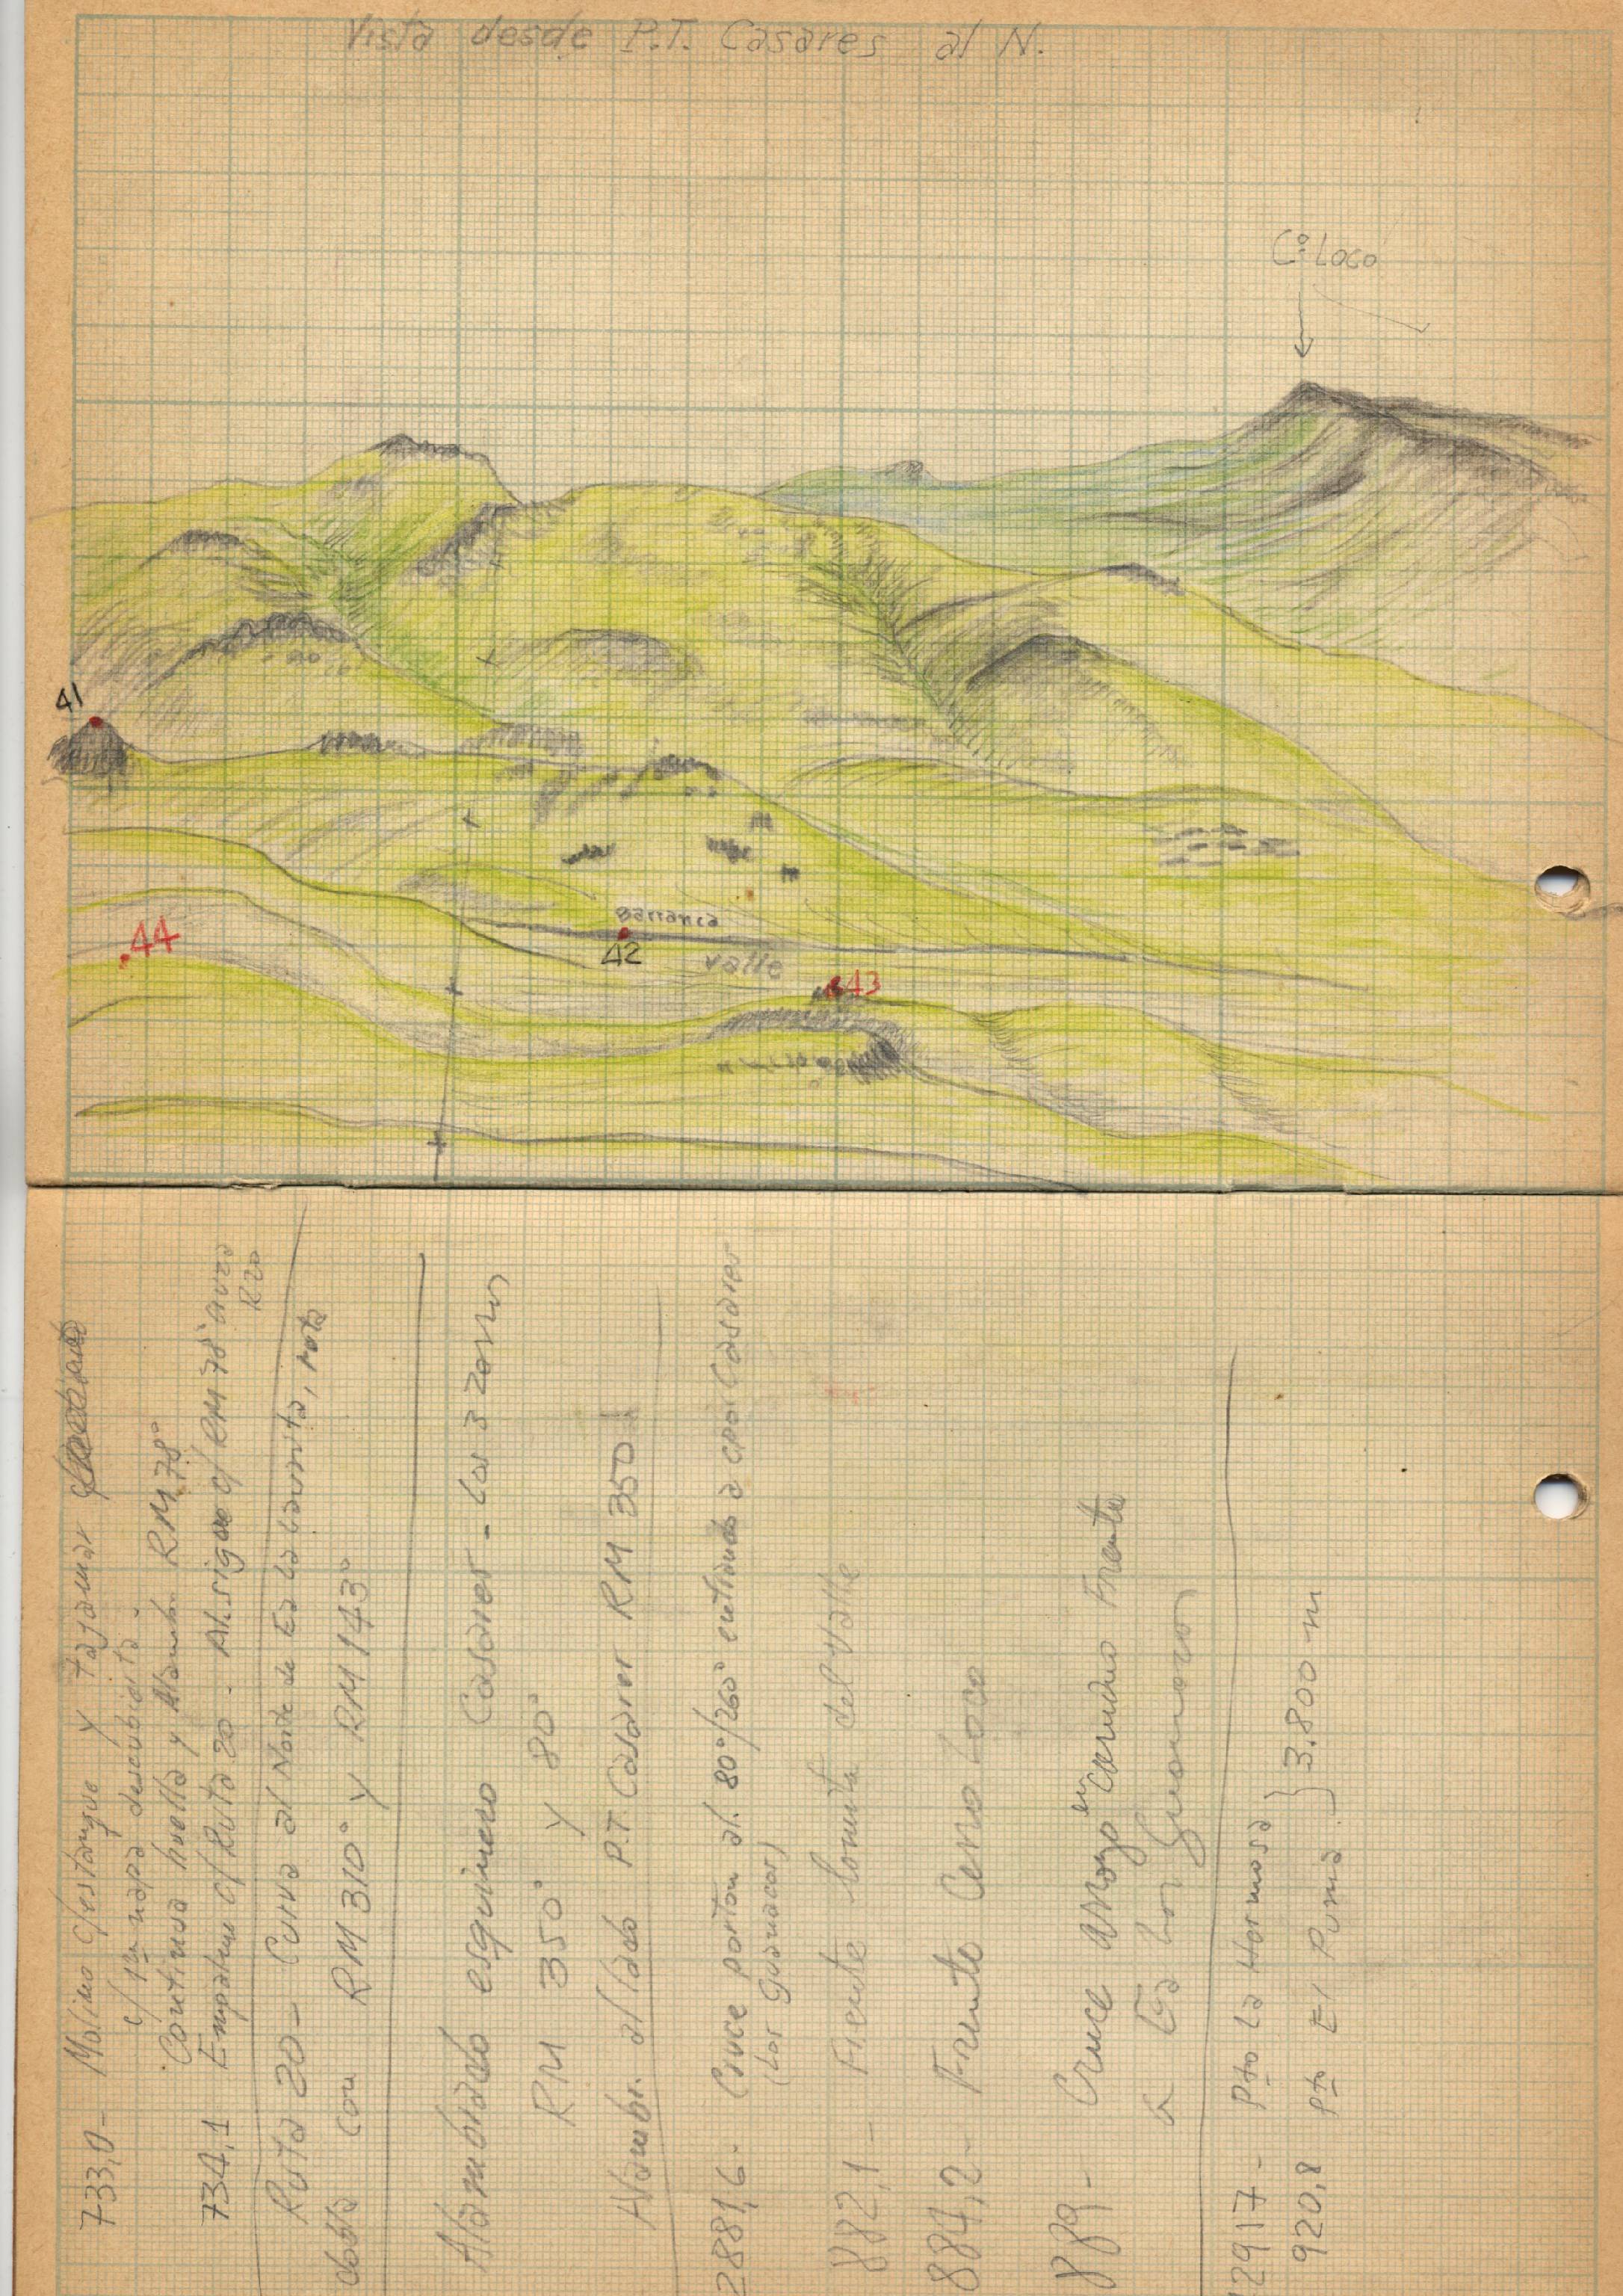 Vista desde P.T. Casares al N.
Cº Loco
41
44
Barranca
42
valle
43
733,0- Molino c/estanque y tajamar
c/ 1ra napa descubierta.
Continua huella y Alamb. RM 78°
734,1 Empalme c/Ruta 20. Al. sigue c/RM 78° cruza
R20
Ruta 20- Curva al Norte de Ea La Laurita, ruta
dobla con RM 310° y RM 143°
Alambrado esquinero Casares - Los 3 Zorros
RM 350° y 80°
Alambr. al lado P.T. Casares RM 350
2881,6- Cruce porton al. 80°/260° entrando a cpo. Casares
(Los Guanacos)
882,1- Frente lomita del valle
884,2- Frente Cerro Loco
889- Cruce arroyo en camino Frente
a Ea Los Guanacos
2917- Pto La Hermosa
920,8 Pto El Puma } 3.800 m